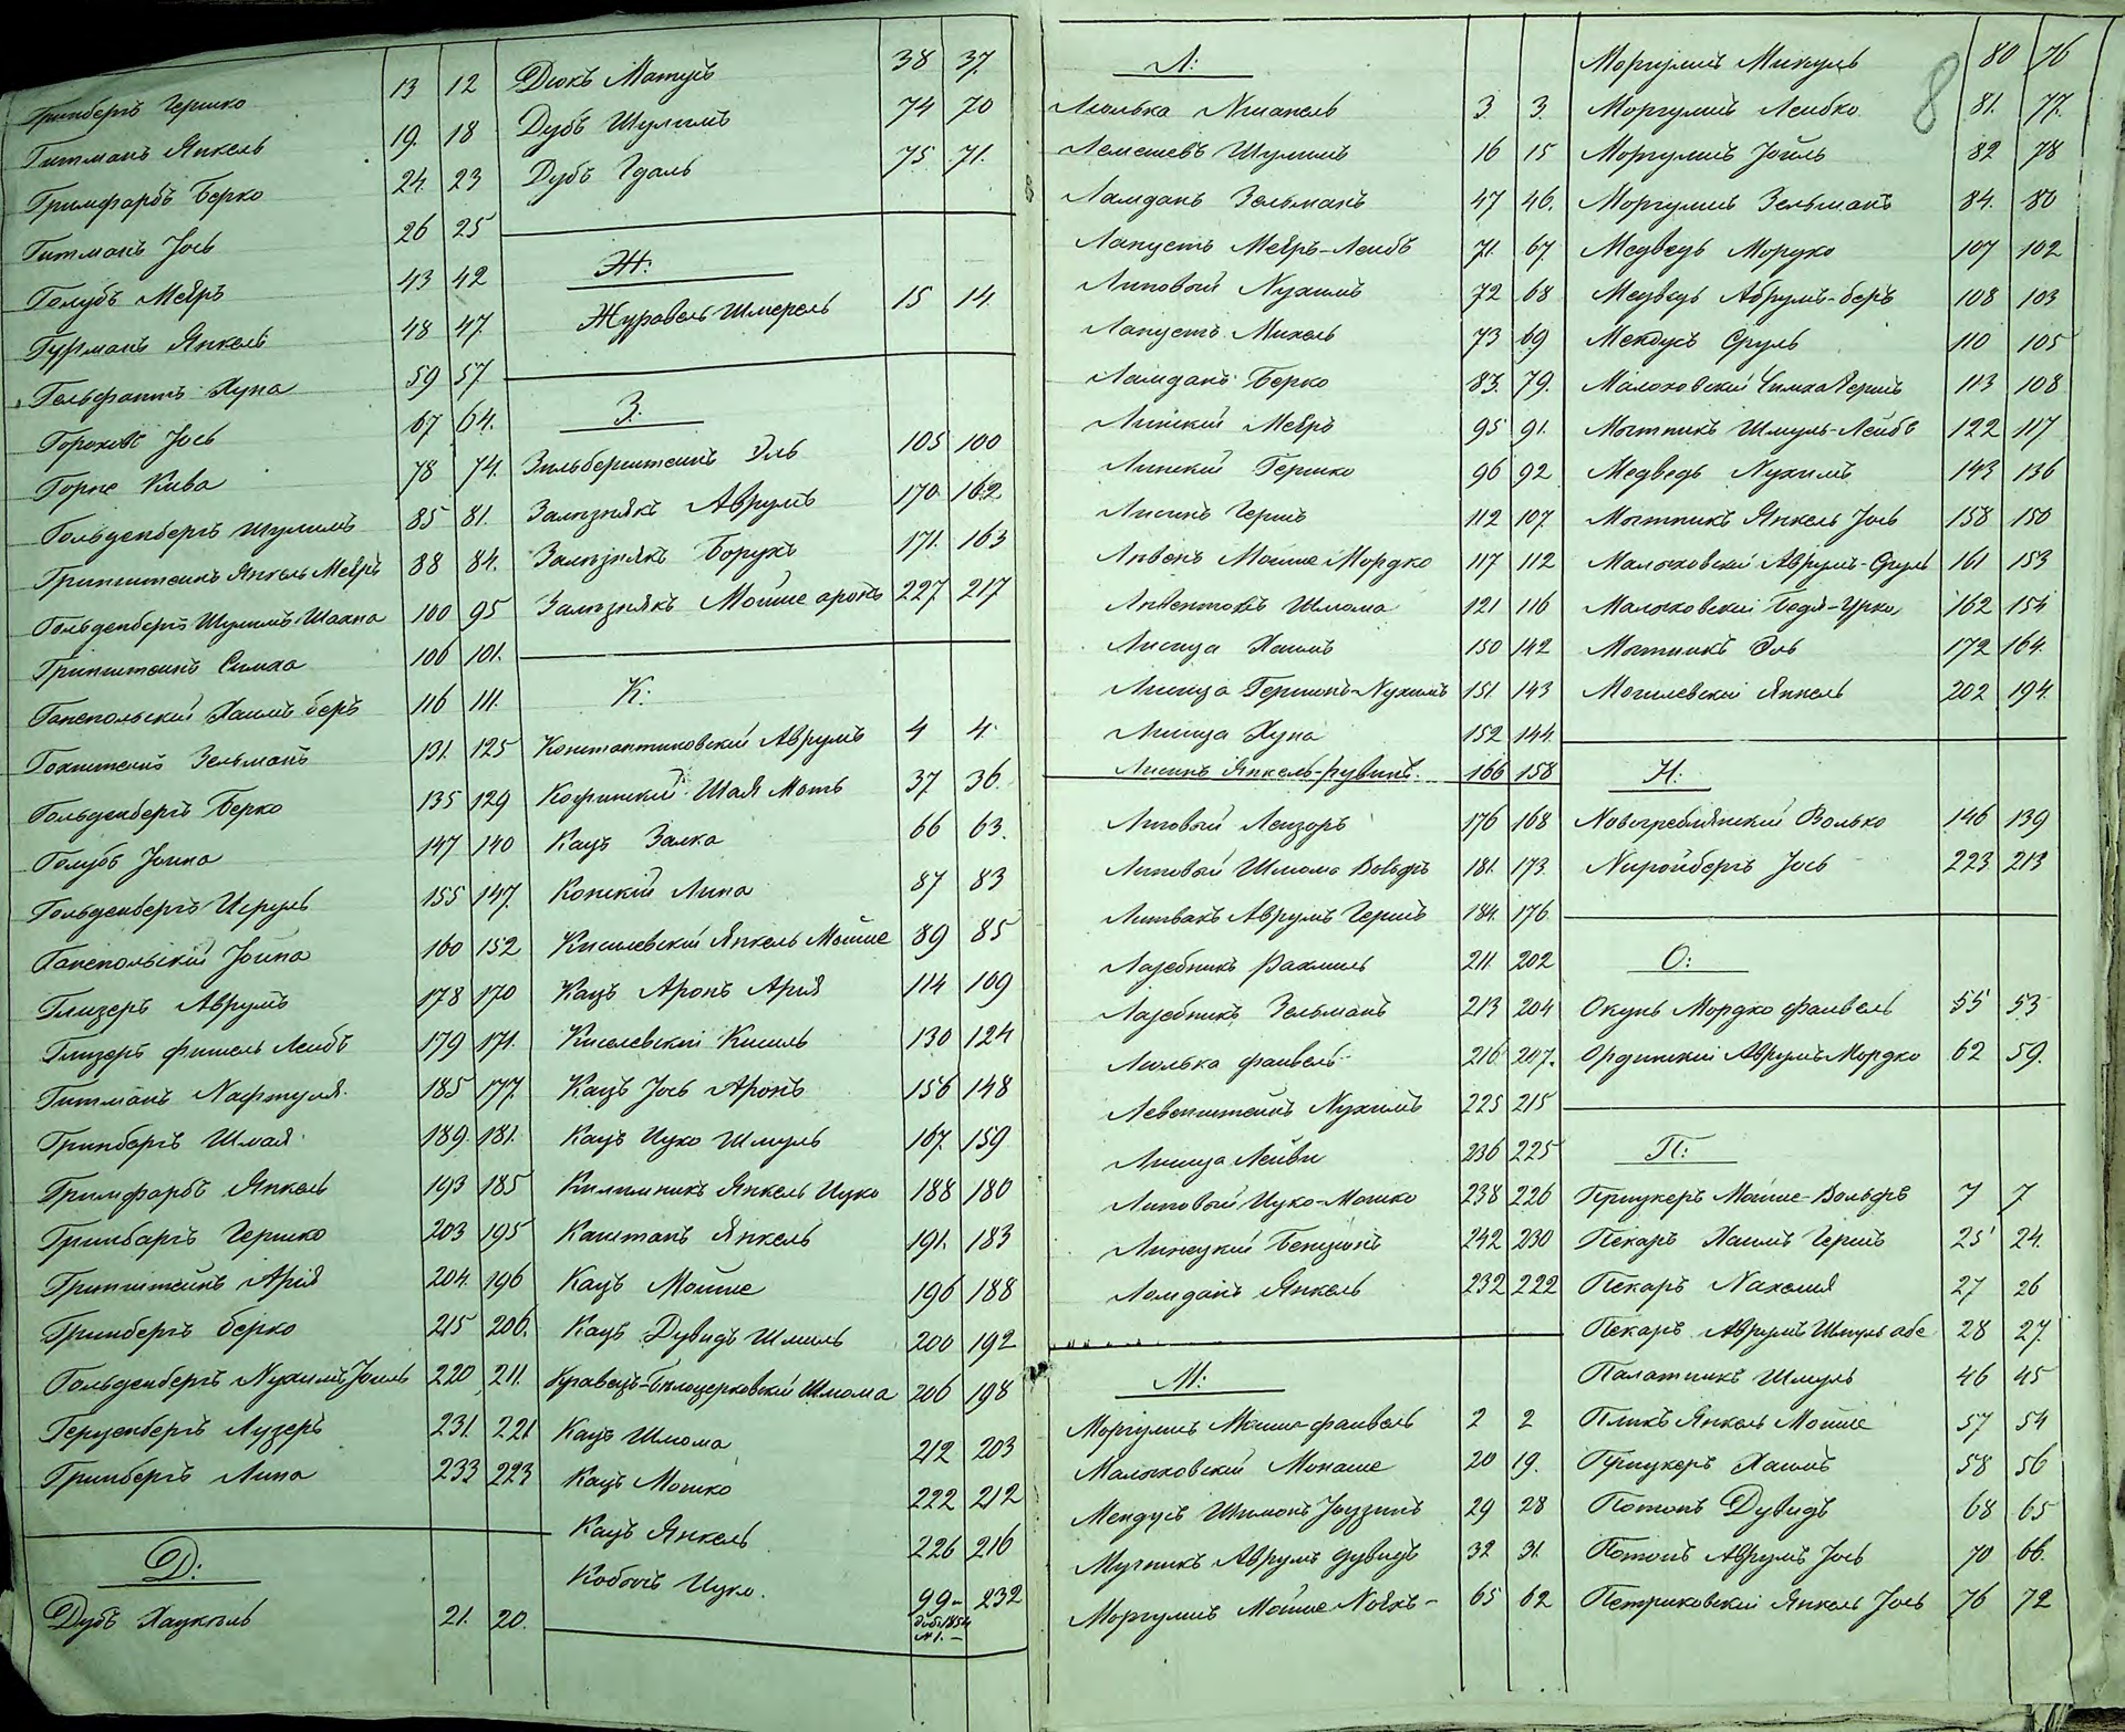 Гринбергъ Гершко 13 12
Гитманъ Янкель 19. 18
Гримфарбъ Берко 24. 23
Гитманъ Іось 26 25
Голубъ Меѣръ 43 42
Гурманъ Янкель 48 47.
Гельфантъ Хуна 59 57
Гороховъ Іось 67 64.
Горне Кива 78 74.
Гольденбергъ Шулимъ 85 81.
Гринштеинъ Янкель Меѣръ 88 84.
Гольденбергъ Шулимъ-Шахна 100 95
Гринштеинъ Симха 106 101.
Ганепольскій Хаимъ беръ 116 111.
Гохштеинъ Зельманъ 131. 125
Гольденбергъ Берко 135 129
Голубъ Іоина 147 140
Гольденбергъ Исруль 155 147.
Ганепольскій Іоина 160 152
Глизеръ Аврумъ 178 170
Глизеръ Фишель Леибъ 179 171.
Гитманъ Нафтула 185 177.
Гринбергъ Шмая 189. 181.
Гримфарбъ Янкель 193 185
Гринбаргъ Гершко 203 195
Гринштейнъ Арія 204. 196
Гринбергъ берко 215 206.
Гольденбергъ Нухимъ Іоиль 220 211.
Герценбергъ Лузеръ 231. 221
Гринбергъ Липа 233 223
Д:
Дубъ Хацкель 21. 20.
Дюкъ Матусъ 38 37.
Дубъ Шулимъ 74 70
Дубъ Гдаль 75. 71.
Ж:
Журавель Шмерель 15 14.
З.
Зильберштеинъ Эль 105 100
Зализнякъ Аврумъ 170 162
Зализнякъ Борухъ 171. 163
Зализнякъ Мойше аронъ 227 217
К:
Константиновскій Аврумъ 4 4
Кофинскій Шая Моть 37 36.
Кацъ Залка 66 63.
Конскій Липа 87 83
Кисилевскій Янкель Мойше 89 85
Кацъ Аронъ Арія 114 109
Киселевскій Кисиль 130 124
Кацъ Іось Аронъ 156 148
Кацъ Ицко Шмуль 167. 159
Килимникъ Янкель Ицко 188 180
Каштанъ Янкель 191. 183
Кацъ Мойше 196 188
Кацъ Дувидъ Шмиль 200 192
Кравецъ-Бѣлоцерковскій Шлома 206 198
Кацъ Шлома 212 203
Кацъ Мошко 222 212
Кацъ Янкель 226 216
Кобыль Ицко. 99- 232
1854 № 1.-
Л:
Люлька Нисанель 3 3.
Лемешевъ Шулимъ 16 15
Ламданъ Зельманъ 47 46.
Лапустъ Меѣръ-Леибъ 71. 67.
Липовый Нухимъ 72 68
Лапустъ Михель 73 69
Ламданъ Берко 83. 79.
Линскій Меѣръ 95 91.
Линскій Гершко 96 92
Лисинъ Гершъ 112 107.
Ливенъ Мойше Мордко 117 112
Шлома 121 116
Лисица Хаимъ 150 142
Лисица Гершонъ-Нухимъ 151. 143
Лисица Хуна 152 144.
Лисинъ Янкель-Рувинъ. 166 158
Липовый Леизоръ 176 168
Липовый Шлома Вольфъ 181. 173.
Литвакъ Аврумъ Гершъ 184. 176
Лазебникъ Рахмиль 211. 202
Лазебникъ Зельманъ 213 204
Люлька Фаивель 216 207.
Левенштейнъ Нухимъ 225 215
Лисица Лейви 236 225
Липовый Ицко-Мошко 238 226
Липецкій Бенціонъ 242 230
Ломданъ Янкель 232 222
М:
Моргулисъ Мойше-Фаивель 2 2
Малюховскій Монаше 20 19.
Мендусъ Шимонъ 29 28
Мучникъ Аврумъ Дувидъ 32 31.
Моргулисъ Мойше Ноѣхъ- 65 62
Моргулисъ Микуль 80 76
Моргулисъ Леибко 81. 77.
Моргулисъ Іоиль 82 78
Моргулисъ Зельманъ 84. 80
Медведь Мордко 107 102
Медведь Абрумъ-беръ 108 103
Мендусъ Сруль 110 105
Малоховскій Симха Гершъ 113 108
Мотникъ Шмуль-Лейбъ 122 117
Медведь Нухимъ 143 136
Мотникъ Янкель Іось 158 150
Малюховскій Аврумъ-Сруль 161 153
Малюховскій 162 154
Мотникъ Эль 172 164.
Могилевскій Янкель 202 194.
Н:
Новогреблянскій Волько 146 139
Ниройбергъ Іось 223 213
О:
Окунь Мордко Фаивель 55 53
Ординскій Аврумъ Мордко 62 59.
П:
Прицкеръ Мойше-Вольфъ 7 7
Пекаръ Хаимъ Гершъ 25 24.
Пекаръ Нахемія 27 26
Пекаръ Аврумъ Шмуль абе 28 27.
Палатникъ Шмуль 46 45
Пликъ Янкель Мойше 57 54
Прицкеръ Хаимъ 58 56
Потокъ Дувидъ 68 65
Потокъ Аврумъ Іось 70 66.
Петриковскій Янкель Іось 76 72
8